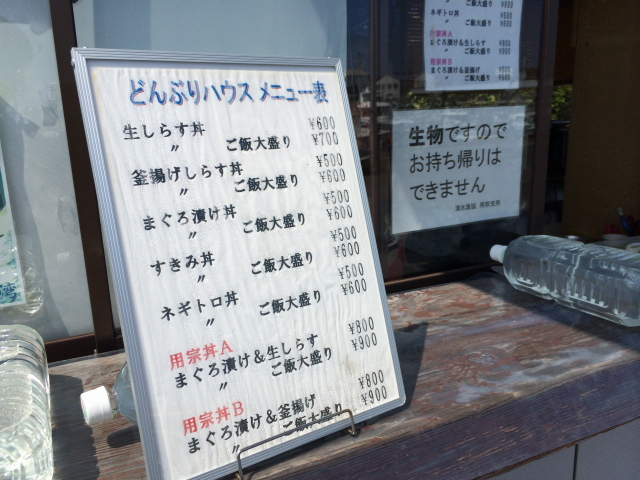 どんぶりハウス メニュー表
生しらす丼 ¥600
〃 ご飯大盛り ¥700
釜揚げしらす丼 ¥500
〃 ご飯大盛り ¥600
まぐろ漬け丼 ¥500
〃 ご飯大盛り ¥600
すきみ丼 ¥500
〃 ご飯大盛り ¥600
ネギトロ丼 ¥500
〃 ご飯大盛り ¥600
用宗丼A ¥800
まぐろ漬け&生しらす
〃 ご飯大盛り ¥900
用宗丼B ¥800
まぐろ漬け&釜揚げ
〃 ご飯大盛り ¥900
ネギトロ丼 ¥500
〃 ご飯大盛り ¥600
用宗丼A
まぐろ漬け&生しらす ¥800
〃 ¥900
用宗丼B
まぐろ漬け&釜揚げ
生物ですので
お持ち帰りは
できません
清水漁協 用宗支所